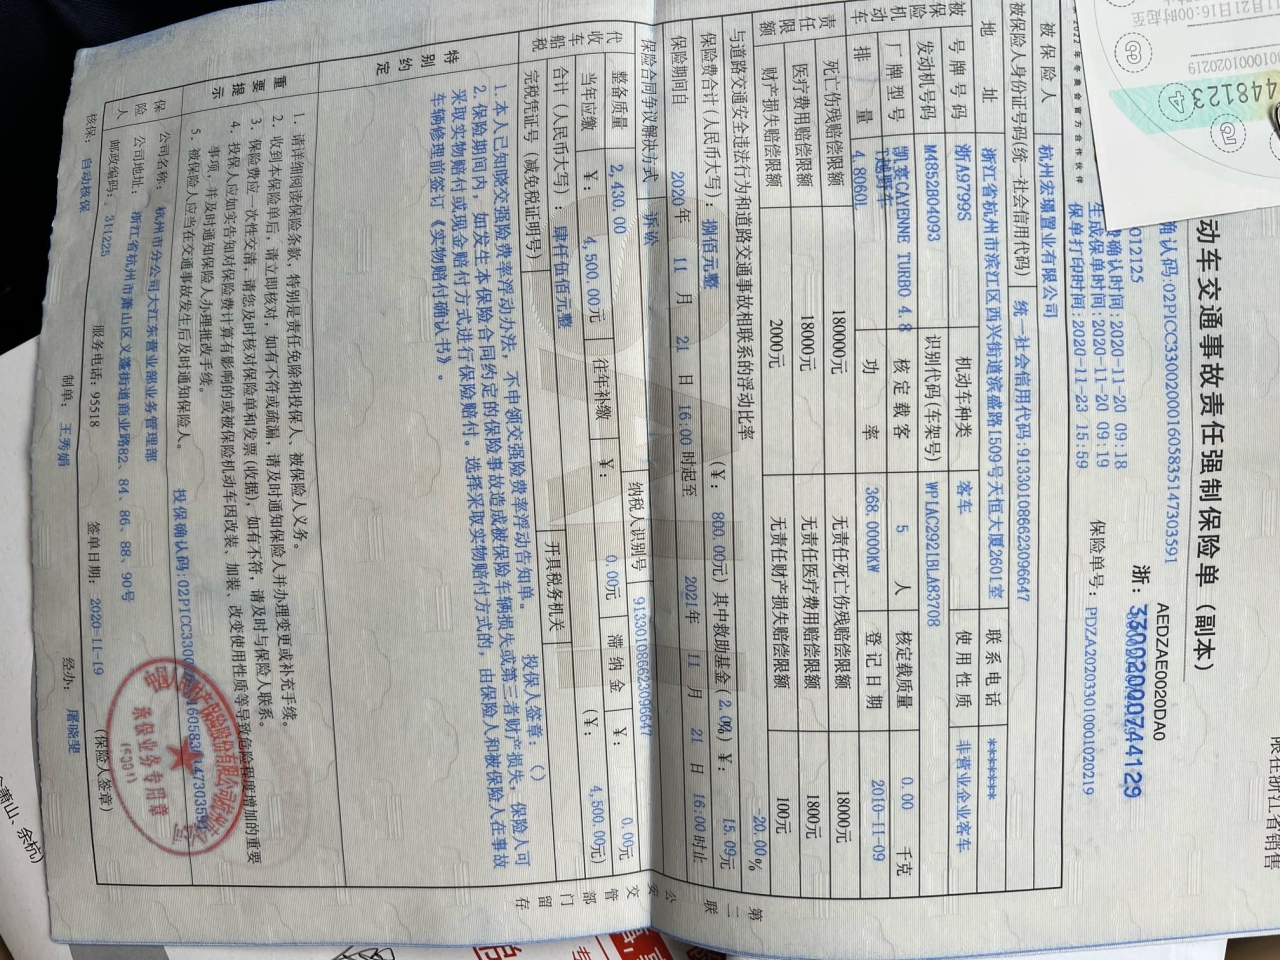 动车交通事故责任强制保险单（副本）
限在浙江省销售
AEDZAE0020DA0
浙：33002000744129
确认码:02PICC330020001605835147303591
012125
确认时间:2020-11-20 09:18
生成保单时间:2020-11-20 09:19
保单打印时间:2020-11-23 15:59
保险单号：PDZA20203301000102021​9
被保险人 杭州宏璟置业有限公司
被保险人身份证号码(统一社会信用代码) 统一社会信用代码:913301086623096647
地址 浙江省杭州市滨江区西兴街道滨盛路1509号天恒大厦2601室 联系电话 ******
被保险机动车
号牌号码 浙A9799S 机动车种类 客车 使用性质 非营业企业客车
发动机号码 M4852B04093 识别代码(车架号) WP1AC2921BLA83708
厂牌型号 凯宴CAYENNE TURBO 4.8T越野车 核定载客 5 人 核定载质量 0.00 千克
排量 4.8060L 功率 368.0000KW 登记日期 2010-11-09
责任限额
死亡伤残赔偿限额 180000元 无责任死亡伤残赔偿限额 18000元
医疗费用赔偿限额 18000元 无责任医疗费用赔偿限额 1800元
财产损失赔偿限额 2000元 无责任财产损失赔偿限额 100元
与道路交通安全违法行为和道路交通事故相联系的浮动比率 -20.00%
保险费合计(人民币大写)：捌佰元整 (¥： 800.00元) 其中救助基金( 2.0%) ¥： 15.09元
保险期间自 2020 年 11 月 21 日 16:00 时起至 2021 年 11 月 21 日 16:00 时止
保险合同争议解决方式 诉讼
代收车船税
整备质量 2,430.00 纳税人识别号 913301086623096647
当年应缴 ¥： 4,500.00元 往年补缴 ¥： 0.00元 滞纳金 ¥： 0.00元
合计（人民币大写）：肆仟伍佰元整 (¥： 4,500.00元)
完税凭证号（减免税证明号） 开具税务机关
特别约定
投保人签章：（）
1. 本人已知晓交强险费率浮动办法，不申领交强险费率浮动告知单。
2. 保险期间内，如发生本保险合同约定的保险事故造成被保险车辆损失或第三者财产损失，保险人可
采取实物赔付或现金赔付方式进行保险赔付。选择采取实物赔付方式的，由保险人和被保险人在事故
车辆修理前签订《实物赔付确认书》.
重要提示
1. 请详细阅读保险条款，特别是责任免除和投保人、被保险人义务。
2. 收到本保险单后，请立即核对，如有不符或疏漏，请及时通知保险人并办理变更或补充手续。
3. 保险费应一次性交清，请您及时核对保险单和发票(收据)，如有不符，请及时与保险人联系。
4. 投保人应如实告知对保险费计算有影响的或被保险机动车因改装、加装、改变使用性质等导致危险程度增加的重要
事项，并及时通知保险人办理批改手续。
5. 被保险人应当在交通事故发生后及时通知保险人。
投保确认码:02PICC330020001605835147303591
保险人
公司名称： 杭州市分公司大江东营业部业务管理部
公司地址： 浙江省杭州市萧山区义蓬街道商业路82、84、86、88、90号
邮政编码： 311225 服务电话：95518 签单日期： 2020-11-19 （保险人签章）
核保： 自动核保 制单： 王秀娟 经办： 屠晓雯
承保业务专用章
第二联 公安交管部门留存
1月21日16:00时起至
01000102021​9
448123
2022年冬奥会官方合作伙伴
萧山、余杭)